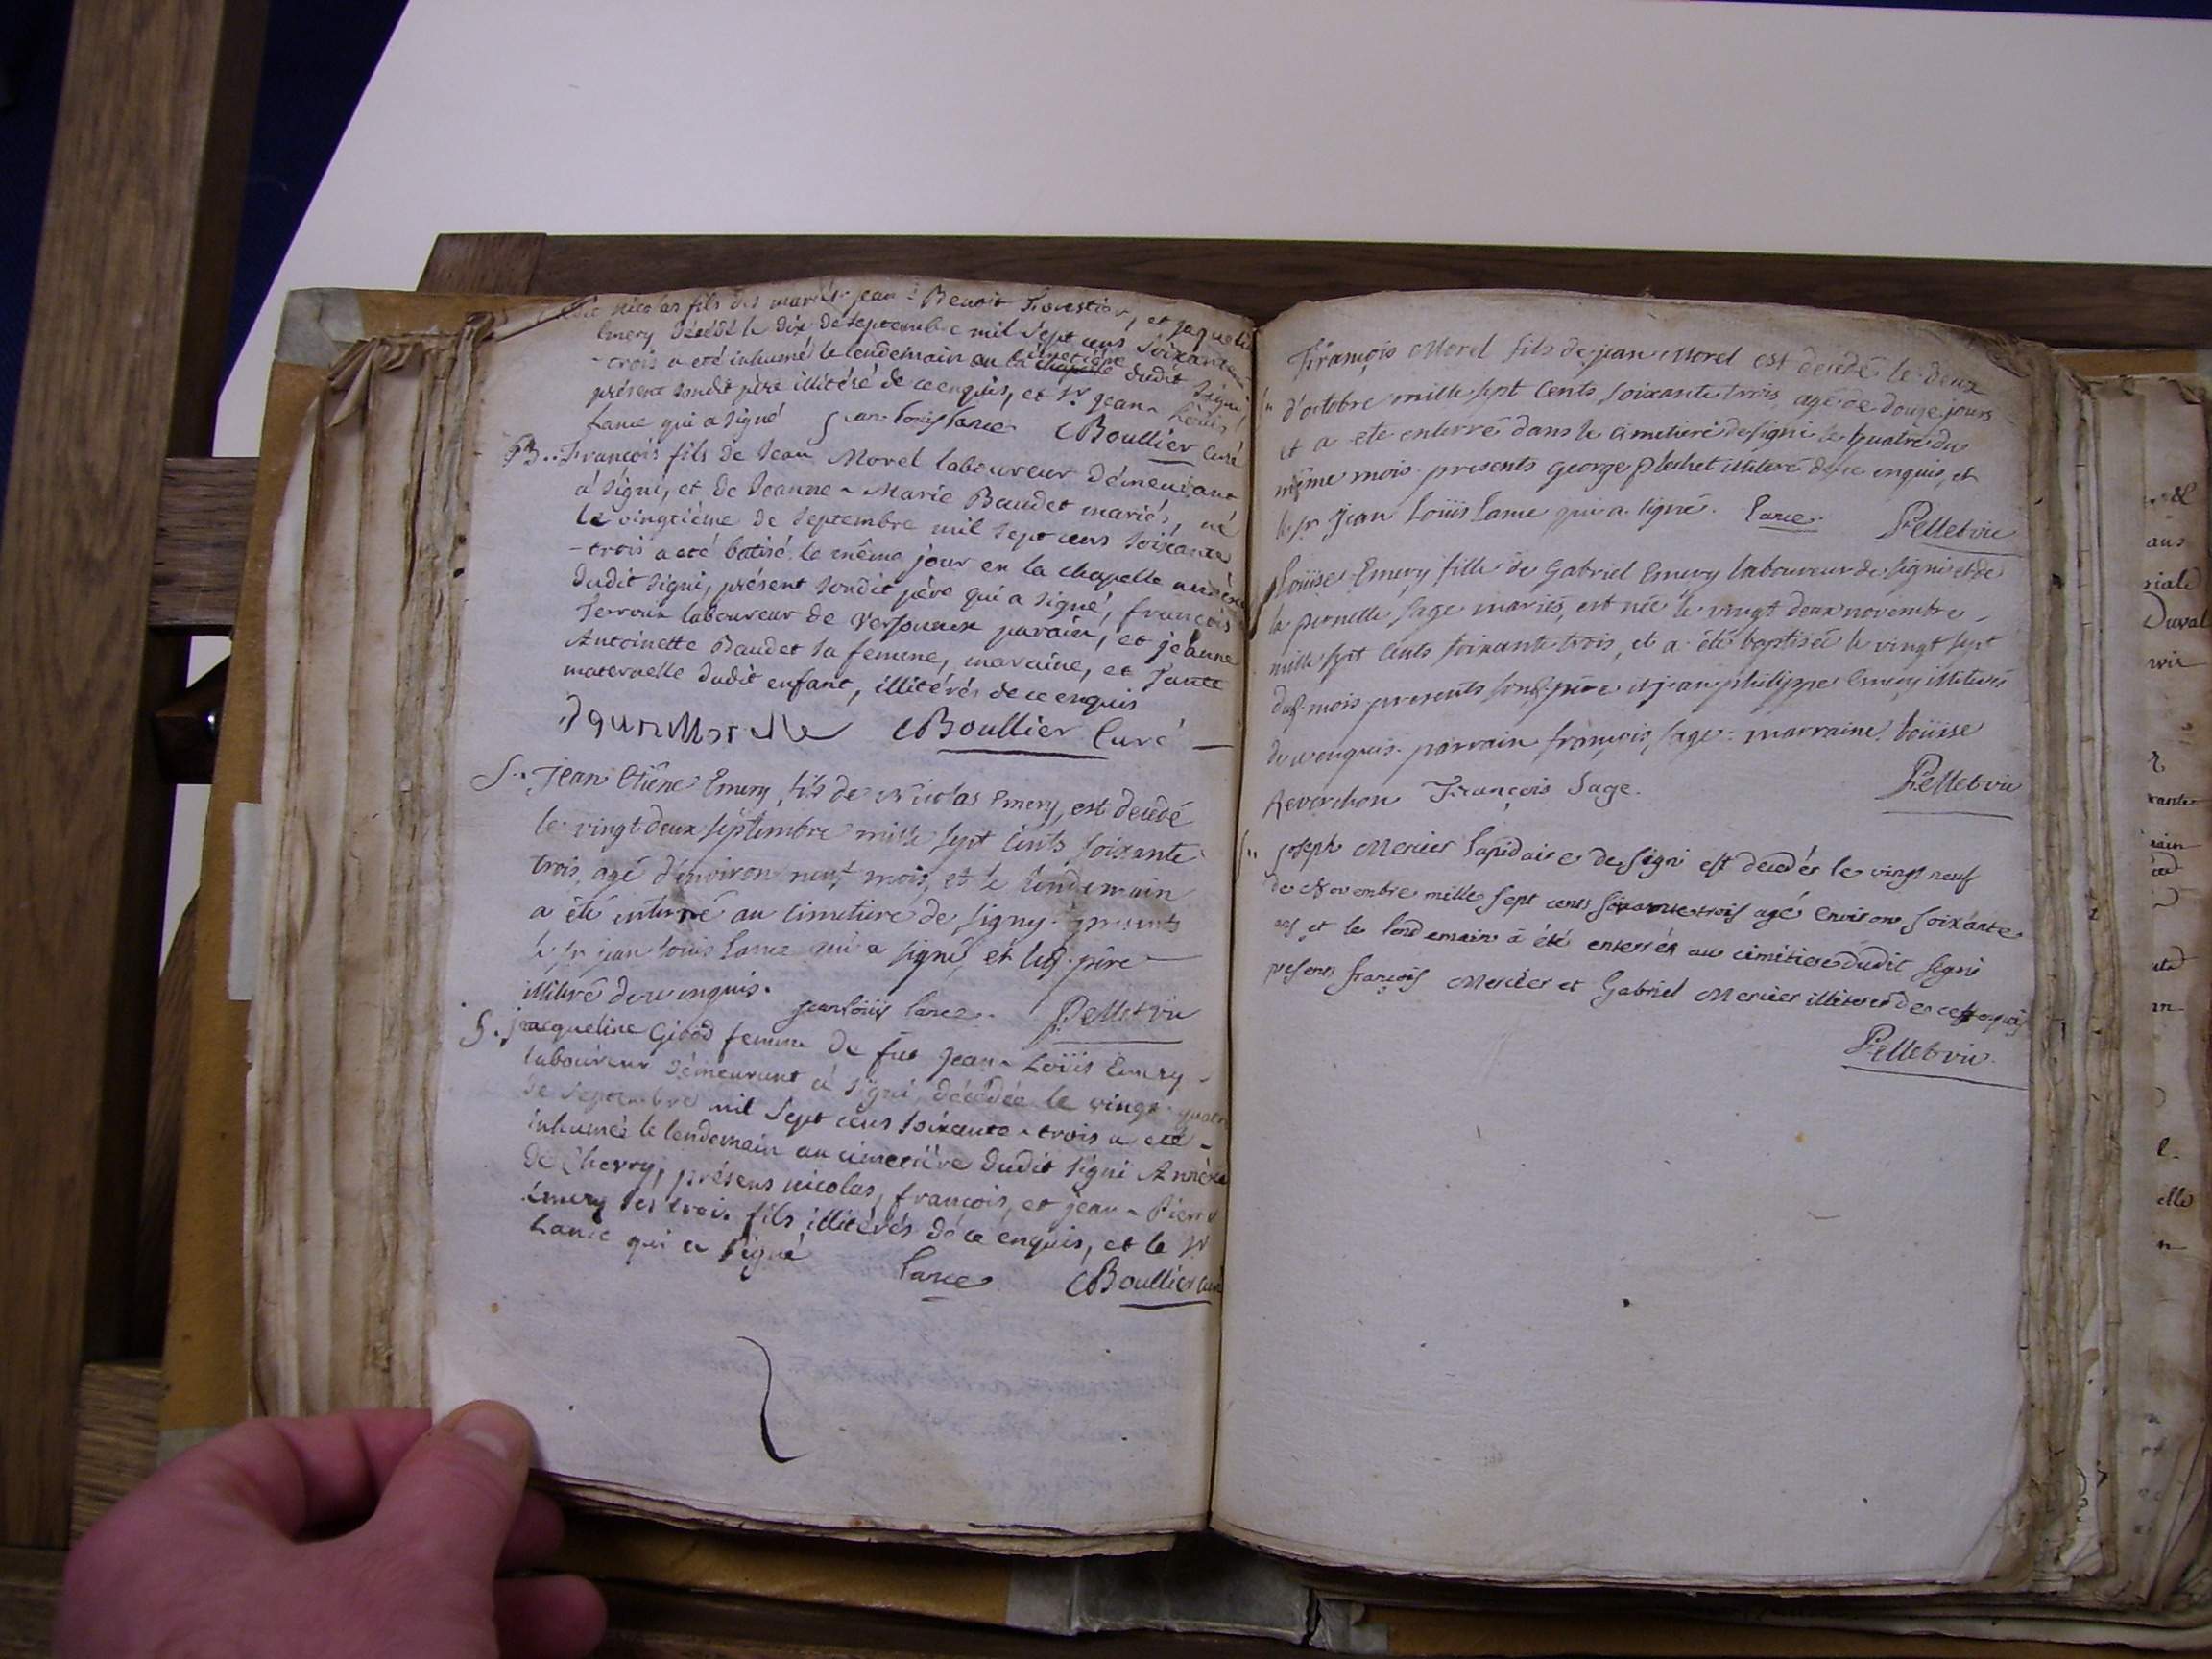 Nicolas fils des mariés jean-Benoit Forestier, et jaqueline
Emery décédé le dix de septembre mil sept cens soixante
-trois a été inhumé le lendemain au cimetière dudit signi
présent sondit père illitéré de ce enquis, et Sr jean-Louis
Lance qui a signé Jean Louis Lance CBoullier Curé
B.. François fils de Jean Morel laboureur démeurant
à signi, et de Jeanne-Marie Baudet mariés, né
le vingtième de septembre mil sept cens soixante
-trois a été batisé le même jour en la chapelle annèxe
dudit signi, présent sondit père qui a signé, françois
Terroux laboureur de Versonnex parain, et jeanne
Antoinette Baudet sa femme, maraine, et Tante
maternelle dudit enfant, illitérés de ce enquis
CBoullier Curé
S.. Jean Etiêne Emery, fils de Nicolas Emery, est decedé
le vingt deux septembre mille sept cents soixante
trois, agé d'environ neuf mois, et le lendemain
a été enterré au cimetiere de signy. presents
le sr jean Louis Lance qui a signé, et led. père
illiteré de ce enquis.
Jean Loüis Lance. Pelletvic
S. jacqueline Girod femme de fut Jean-Loüis Emery
laboureur démeurant à signi, décédée le vingt-quatre
de septembre mil sept cens soixante-trois a été
inhumée le lendemain au cimetière dudit signi Annèxe
de Chevry, présens nicolas, françois, et jean-Pierre
Emery ses trois fils illitérés de ce enquis, et le Sr
Lance qui a signé
Lance CBoullier Curé
François Morel fils de jean Morel est decédé le deux
d'octobre mille sept cents soixante trois, agé de douze jours
et a eté enterré dans le cimetiere de signi le quatre du
même mois. presents george illiteré de ce enquis, et
le sr Jean Loüis Lance qui a signé. Lance. Pelletvic
Loüise Emery fille de Gabriel Emery laboureur de signi et de
la pernette sage mariés, est née le vingt deux novembre
mille sept cents soixante trois, et a été baptisée le vingt sept
dud. mois presents sond. père et jean philippe Emery illiterés
de ce enquis. parrain françois sage: marraine Loüise
Reverchon François Sage. Pelletvic
S.. joseph Mercier Lapidaire de signi est decedér le vingt neuf
de Novembre mille sept cents soixante trois agé environ soixante
ans et le lendemain à été enterrér au cimétiere dudit signi
presents françois Mercier et Gabriel Mercier illiterés de ce enquis
Pelletvic